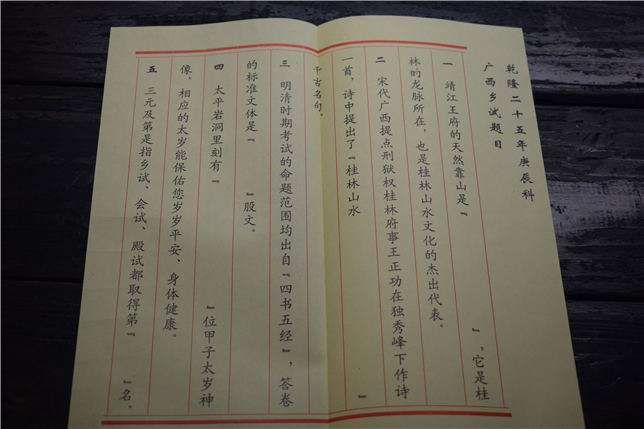 乾隆二十五年庚辰科
广西乡试题目
一 靖江王府的天然靠山是『 』,它是桂
林的龙脉所在,也是桂林山水文化的杰出代表。
二 宋代广西提点刑狱权桂林府事王正功在独秀峰下作诗
一首,诗中提出了『桂林山水 』
千古名句。
三 明清时期考试的命题范围均出自『四书五经』,答卷
的标准文体是『 』股文。
四 太平岩洞里刻有『 』位甲子太岁神
像,相应的太岁能保佑您岁岁平安、身体健康。
五 三元及第是指乡试、会试、殿试都取得第『 』名。